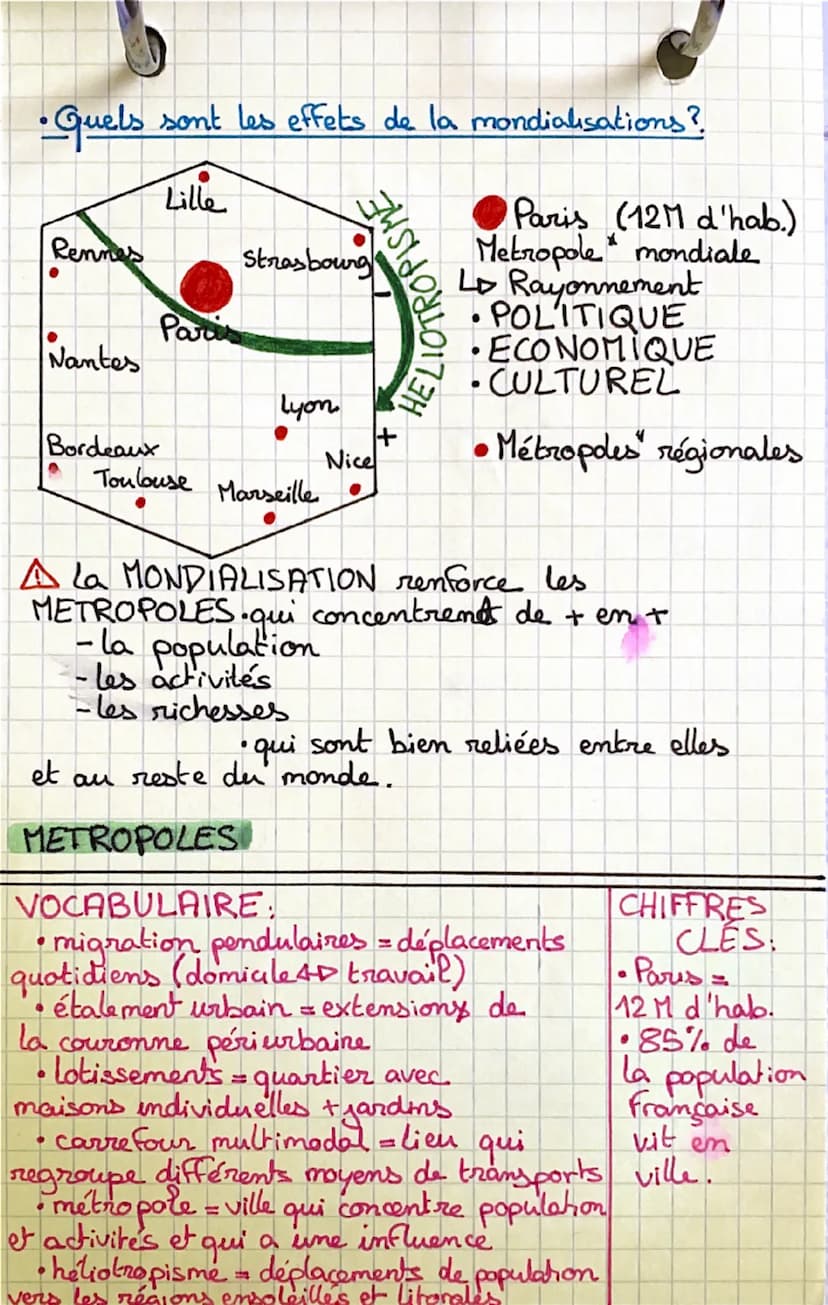 • Quels sont les effets de la mondialisations?
Lille
Rennes
Strasbourg
Paris
Nantes
Lyon
Bordeaux
Nice
Toulouse
Marseille
HELIOTROPISME
-
+
Paris (12M d'hab.)
Metropole* mondiale
↳ Rayonnement
• POLITIQUE
• ECONOMIQUE
• CULTUREL
• Métropoles" régionales
⚠ La MONDIALISATION renforce les
METROPOLES • qui concentrent de + en +
- la population
- les activités
- les richesses
• qui sont bien reliées entre elles
et au reste du monde.
METROPOLES
VOCABULAIRE:
• migration pendulaires = déplacements
quotidiens (domicile ↔ travail)
• étalement urbain = extensions de
la couronne périurbaine
• lotissements = quartier avec
maisons individuelles + jardins
• carrefour multimodal = lieu qui
regroupe différents moyens de transports
• métropole = ville qui concentre population
et activités et qui a une influence
• héliotropisme = déplacements de population
vers les régions ensoleillés et litorales
CHIFFRES
CLÉS:
• Paris =
12 M d'hab.
• 85% de
la population
Française
vit en
ville.